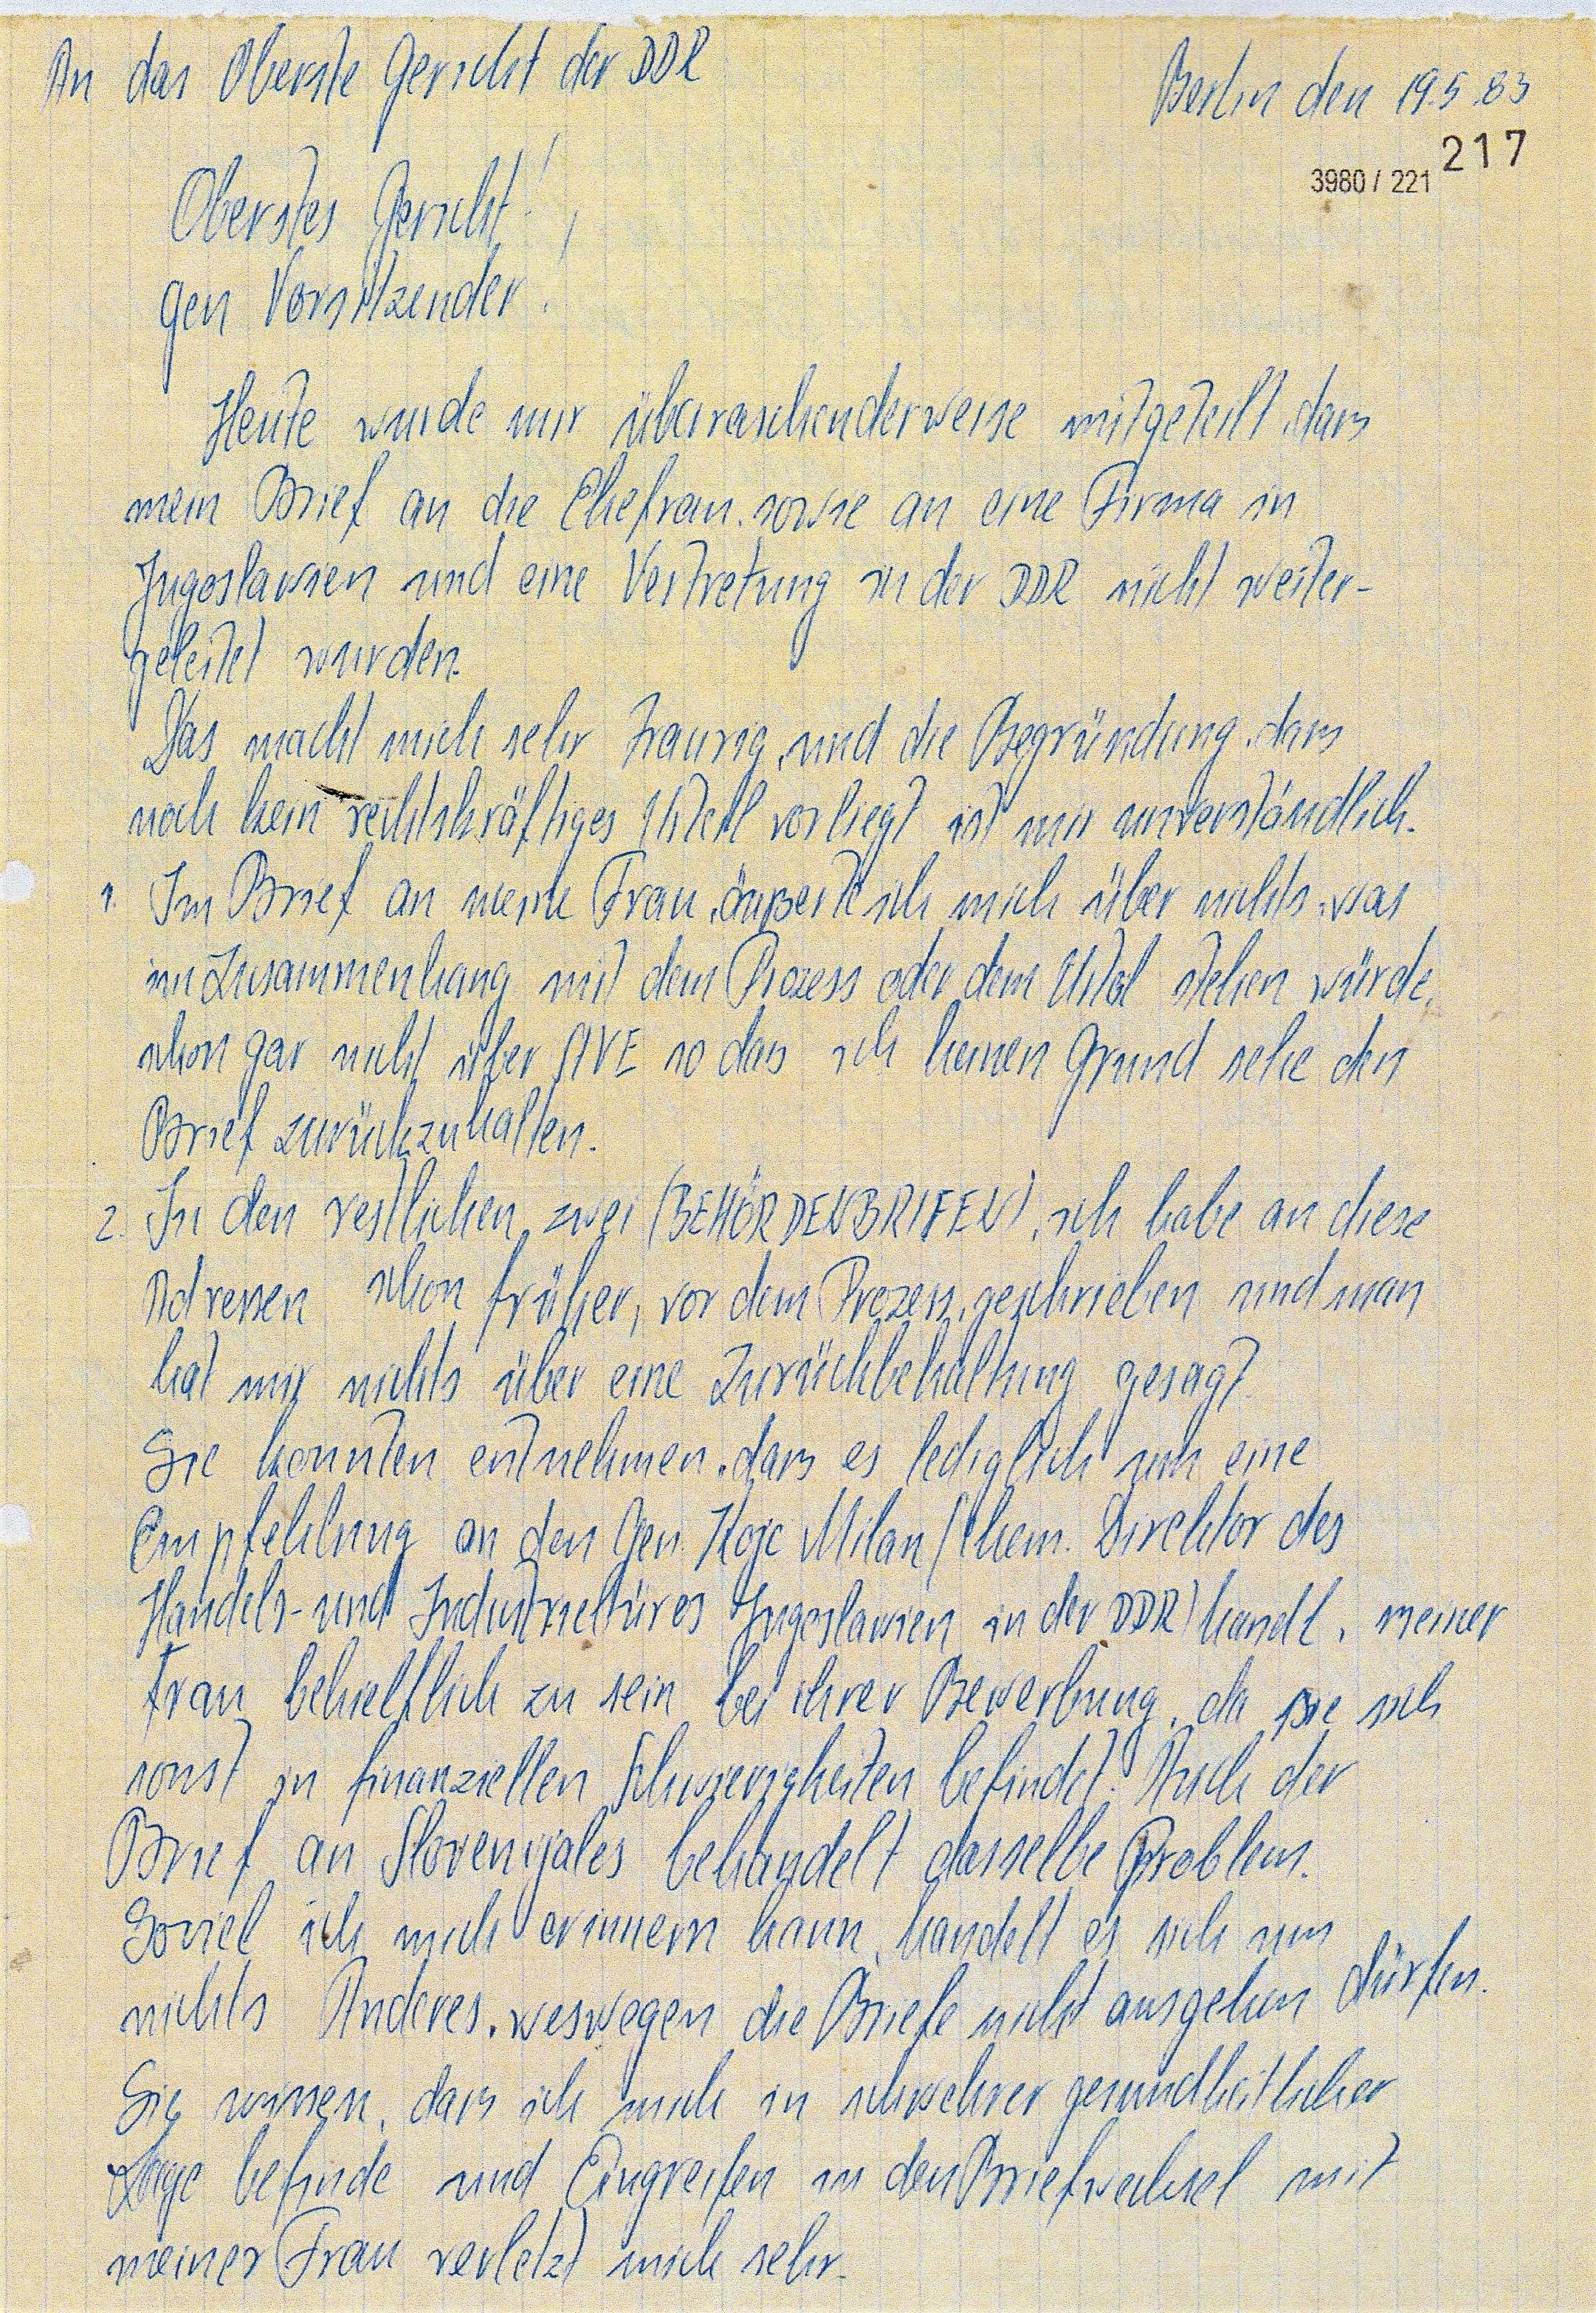 An das Oberste Gericht der DDR
Berlin den 19.5.83
217
3980 / 221
Oberstes Gericht!
Gen Vorsitzender!
Heute wurde mir überraschenderweise mitgeteilt, dass
mein Brief an die Ehefrau, sowie an eine Firma in
Jugoslawien und eine Vertretung in der DDR nicht weiter-
geleitet wurden.
Das macht mich sehr traurig, und die Begründung, dass
noch kein rechtskräftiges Urteil vorliegt ist mir unverständlich.
1. Im Brief an meine Frau, äußerte ich mich über nichts, was
im Zusammenhang mit dem Prozess oder dem Urteil stehen würde,
schon gar nicht über AVE so dass ich keinen Grund sehe den
Brief zurückzuhalten.
2. In den restlichen, zwei (BEHÖRDENBRIFEN), ich habe an diese
Adressen schon früher, vor dem Prozess, geschrieben und man
hat mir nichts über eine Zurückbehaltung gesagt.
Sie konnten entnehmen, dass es lediglich um eine
Empfehlung an den Gen. Kojc Milan (Ehem. Direktor des
Handels- und Jugoslawien in der DDR) handl, meiner
Frau behielflich zu sein bei ihrer Bewerbung, da sie sich
sonst in finanziellen Schwierigkeiten befindet. Auch der
Brief an Slovenijales behandelt dasselbe Problem.
Soviel ich mich erinnern kann, handelt es sich um
nichts Anderes, weswegen die Briefe nicht ausgehen dürfen.
Sie wissen, dass ich mich in schwehrer gesundheitlicher
Lage befinde und Eingreifen in den Briefwechsel mit
meiner Frau verletzt mich sehr.